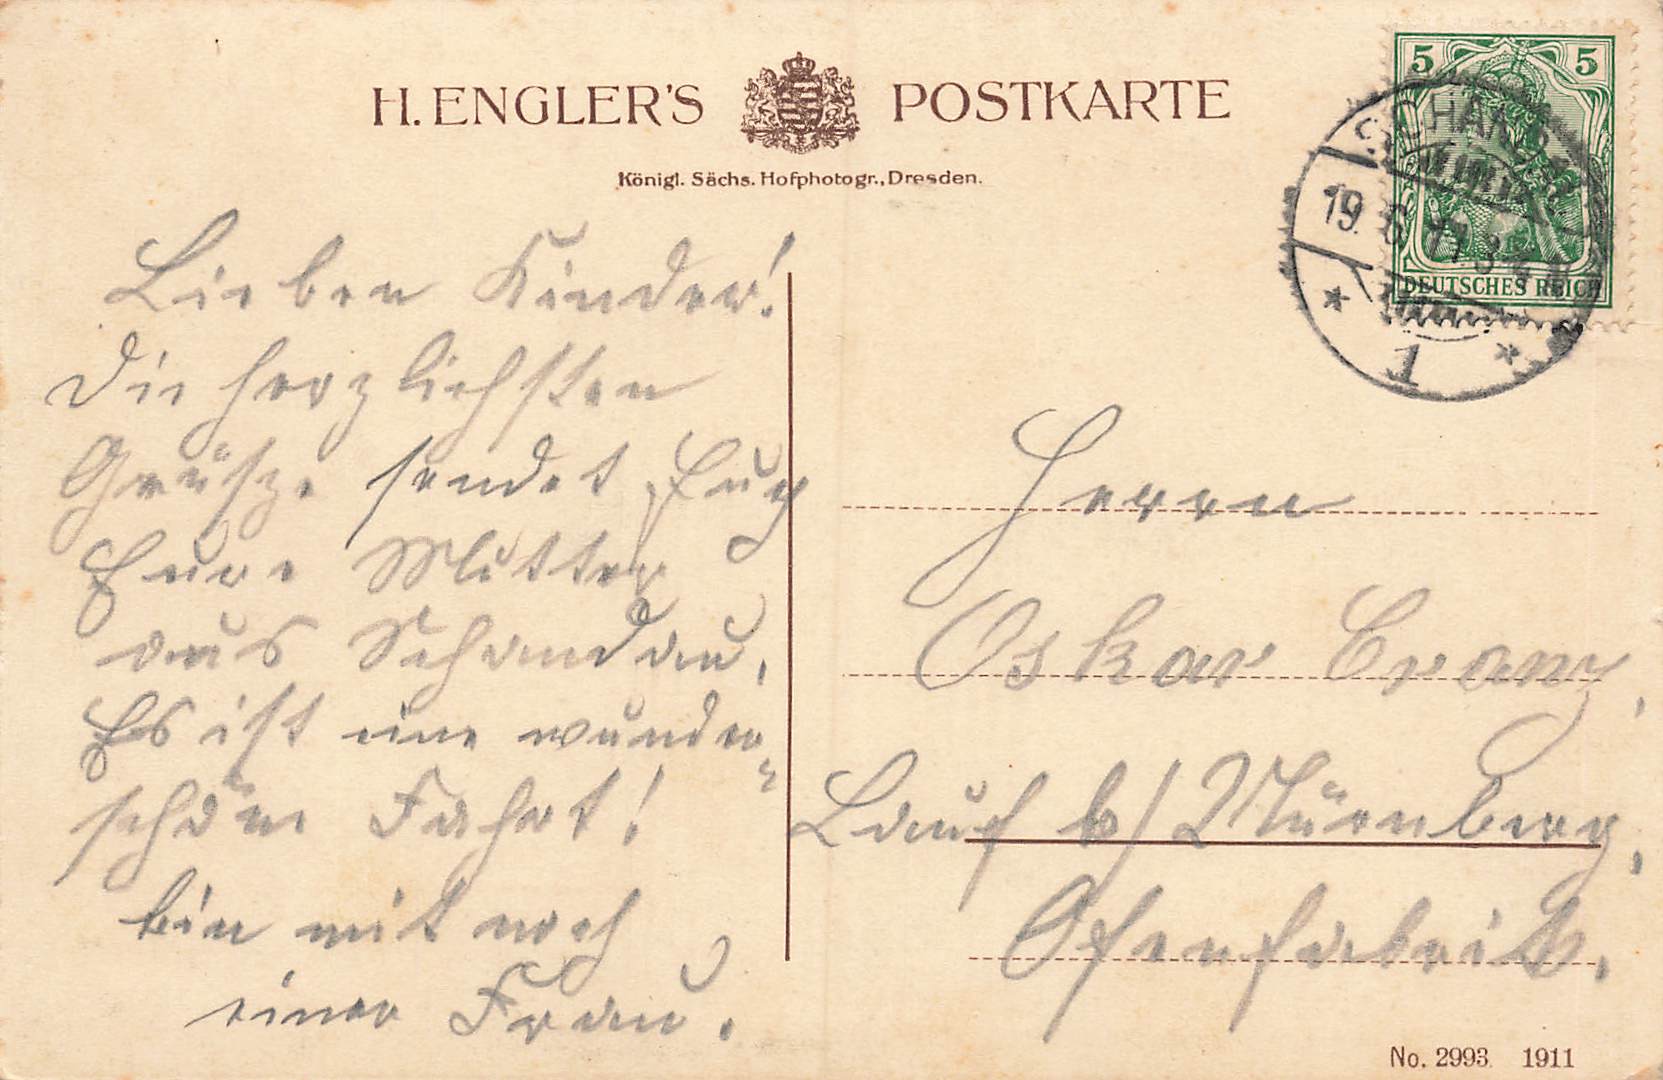 H. ENGLER'S POSTKARTE
Königl. Sächs. Hofphotogr., Dresden.
5 5
DEUTSCHES REICH
SCHANDAU
19. 6. 11. 3-4 N.
* 1 *
Lieben Kinder!
Die herzlichsten
Grüsze sendet Euch
Eure Mutter
aus Schandau,
Es ist eine wunder-
schöne Fahrt!
bin mit noch
einer Frau.
Herrn
Oskar Cranz,
Lauf b/ Nürnberg,
Ofenfabrik.
No. 2993 1911